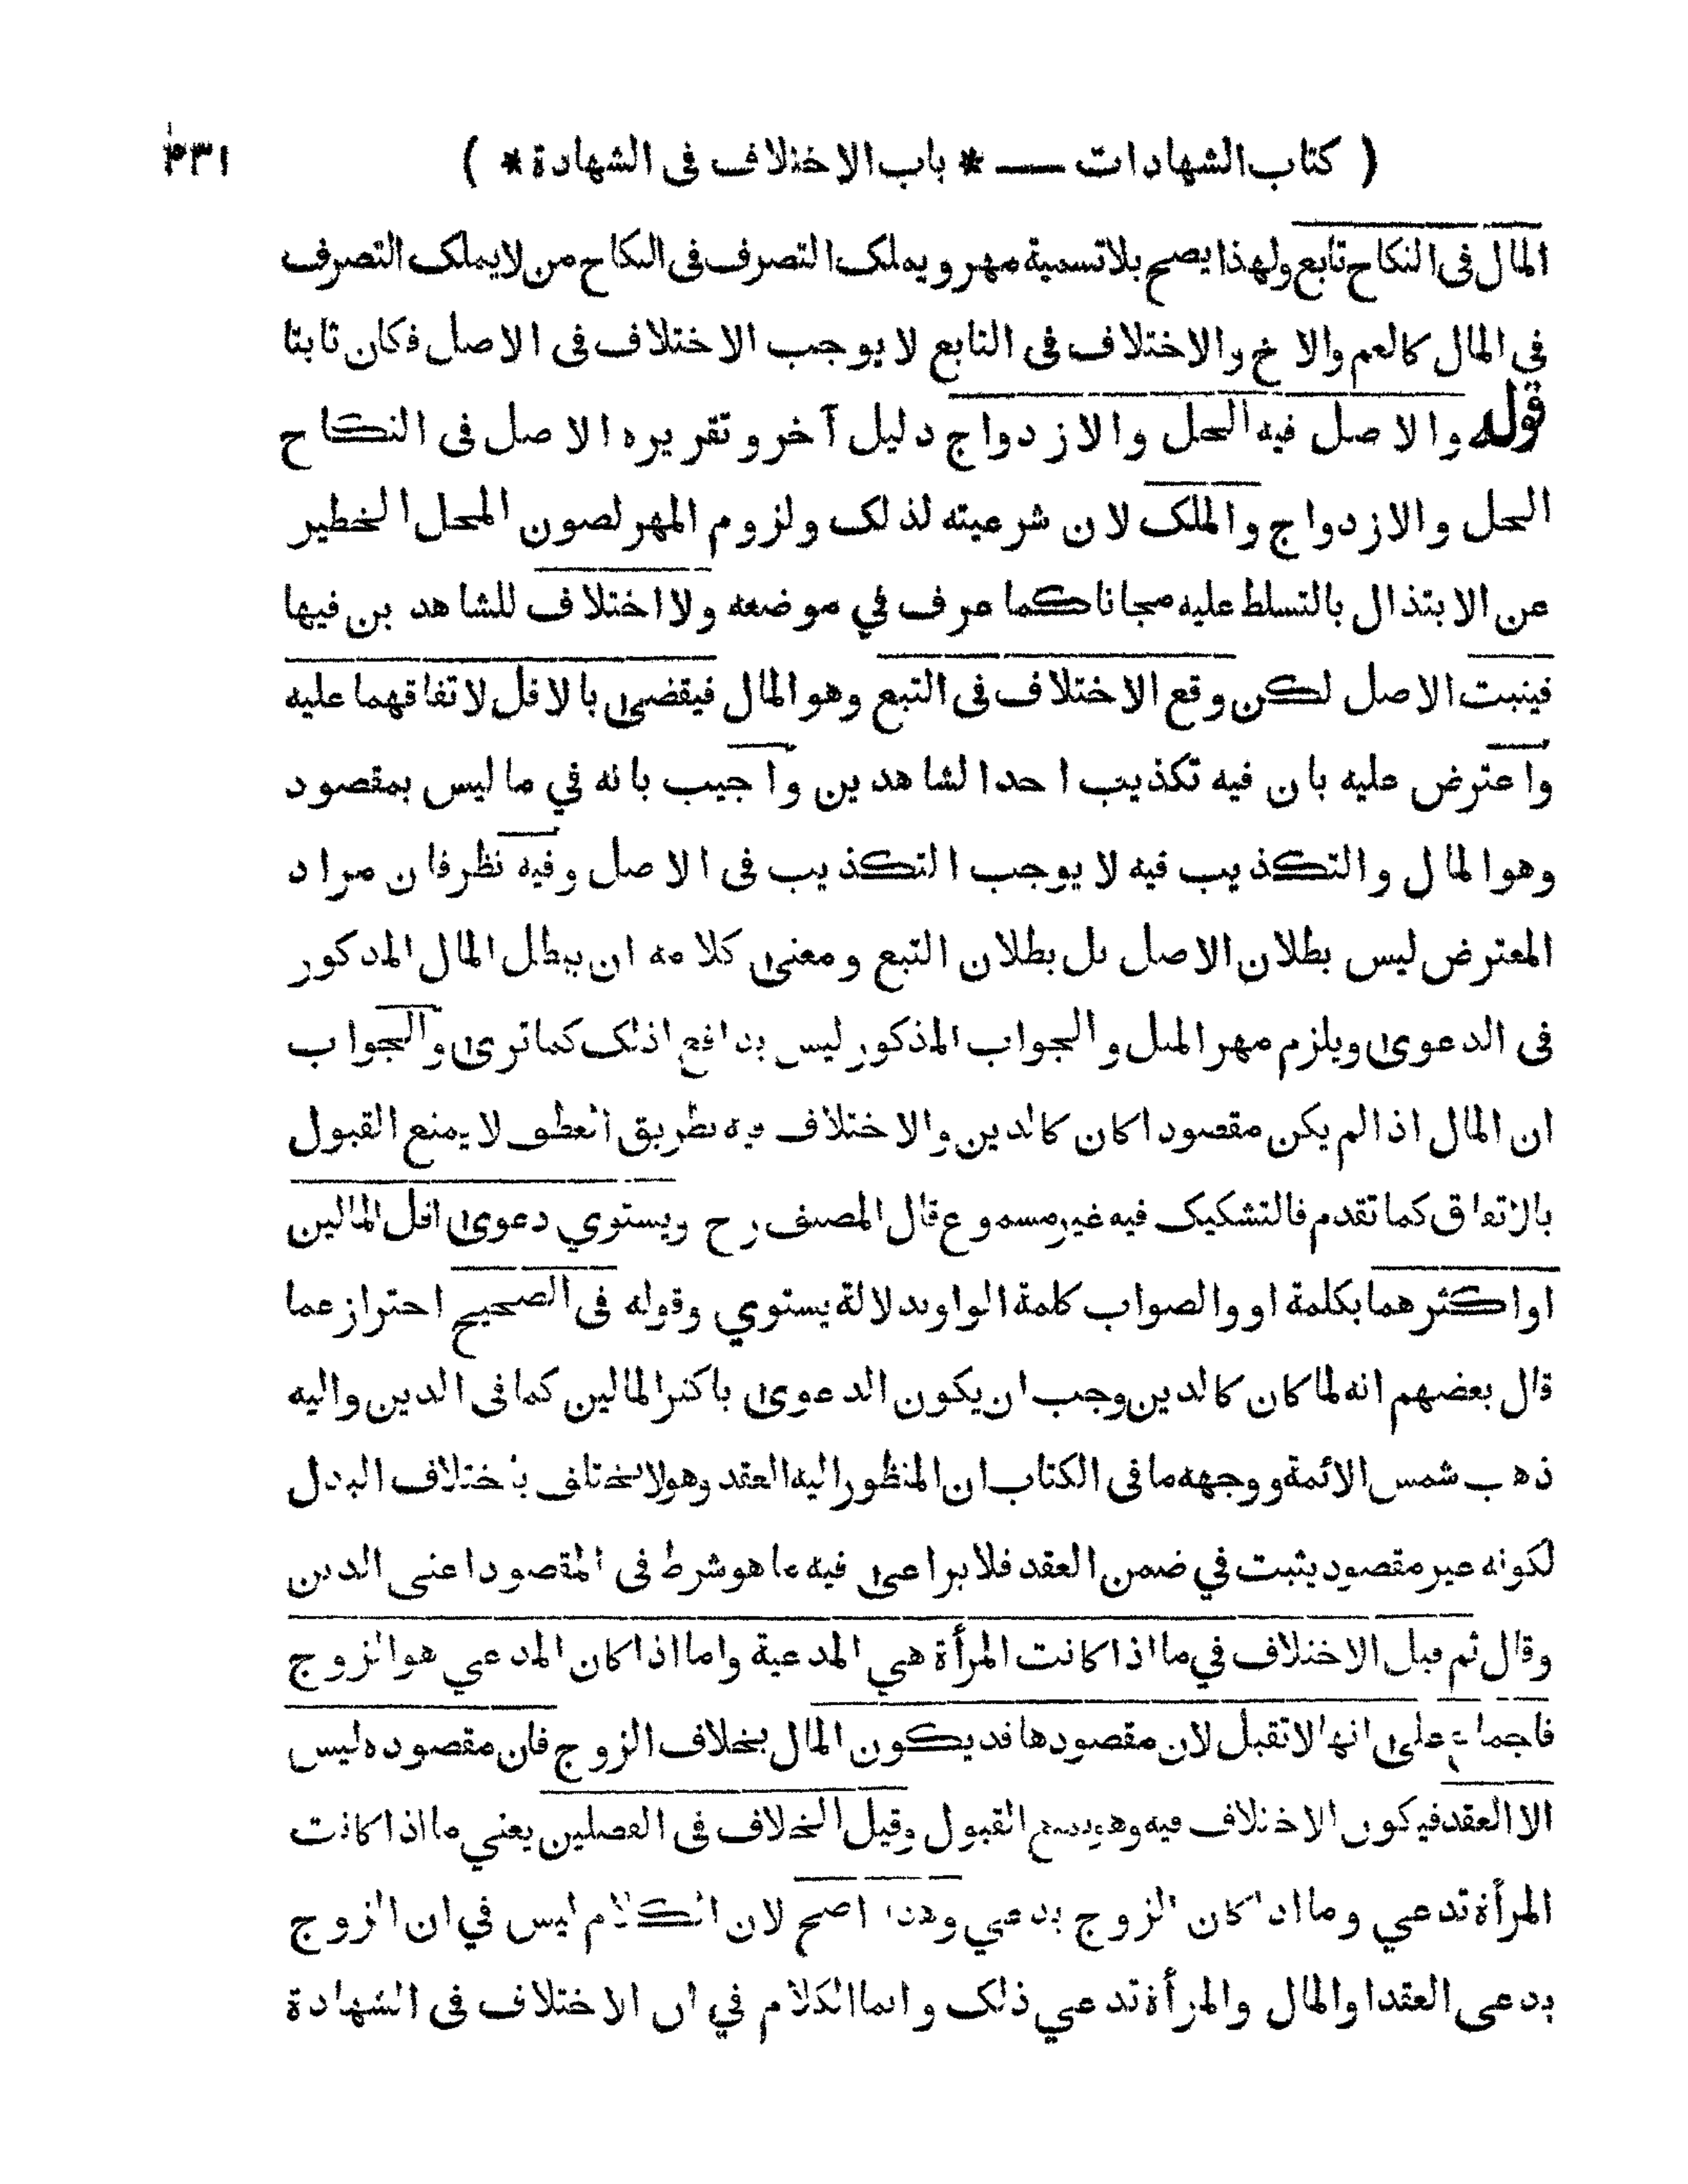 ( كتاب الشهادات — * باب الاختلاف فى الشهادة * ) ۴۳۱
المال فى النكاح تابع ولهذا يصح بلا تسمية مهر ويملك التصرف فى النكاح من لا يملك التصرف
في المال كالعم والاخ والاختلاف فى التابع لا يوجب الاختلاف فى الاصل فكان ثابتا
قوله والاصل فيه الحل والازدواج دليل آخر وتقريره الاصل فى النكاح
الحل والازدواج والملك لان شرعيته لذلك ولزوم المهر لصون المحل الخطير
عن الابتذال بالتسلط عليه مجانا كما عرف في موضعه ولا اختلاف للشاهدين فيها
فيثبت الاصل لكن وقع الاختلاف فى التبع وهو المال فيقضى بالاقل لاتفاقهما عليه
واعترض عليه بان فيه تكذيب احد الشاهدين واجيب بانه في ما ليس بمقصود
وهو المال والتكذيب فيه لا يوجب التكذيب فى الاصل وفيه نظر فان مراد
المعترض ليس بطلان الاصل بل بطلان التبع ومعنى كلامه ان يبطل المال المذكور
فى الدعوى ويلزم مهر المثل والجواب المذكور ليس بدافع لذلك كما ترى والجواب
ان المال اذا لم يكن مقصودا كان كالدين والاختلاف فيه بطريق العطف لا يمنع القبول
بالاتفاق كما تقدم فالتشكيك فيه غير مسموع قال المصنف رح ويستوي دعوى اقل المالين
او اكثرهما بكلمة او والصواب كلمة الواو بدلالة يستوي وقوله فى الصحيح احتراز عما
قال بعضهم انه لما كان كالدين وجب ان يكون الدعوى باكثر المالين كما فى الدين واليه
ذهب شمس الائمة ووجهه ما فى الكتاب ان المنظور اليه العقد وهو لا يختلف باختلاف البدل
لكونه غير مقصود يثبت في ضمن العقد فلا يراعى فيه ما هو شرط فى المقصود اعنى الدين
وقال ثم قيل الاختلاف في ما اذا كانت المرأة هي المدعية واما اذا كان المدعي هو الزوج
فاجماع على انها لا تقبل لان مقصودها قد يكون المال بخلاف الزوج فان مقصوده ليس
الا العقد فيكون الاختلاف فيه وهو يمنع القبول وقيل الخلاف فى الفصلين يعني ما اذا كانت
المرأة تدعي وما اذا كان الزوج يدعي وهذا اصح لان الكلام ليس في ان الزوج
يدعى العقد او المال والمرأة تدعي ذلك وانما الكلام في ان الاختلاف فى الشهادة